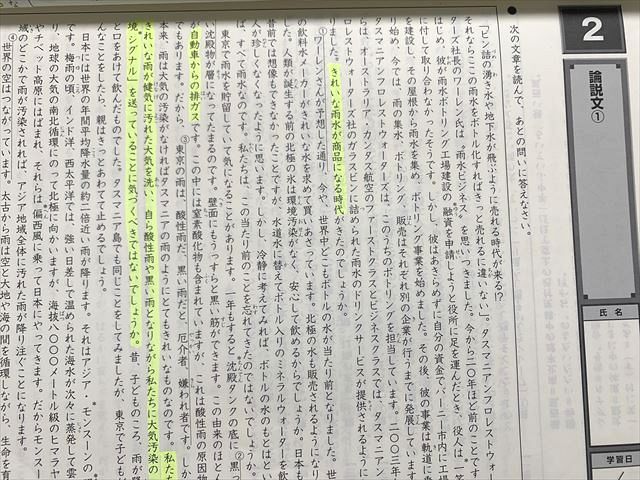 2
論説文①
氏名
学習日
次の文章を読んで、あとの問いに答えなさい。
「ビン詰めの湧き水や地下水が飛ぶように売れる時代が来る!?
それならここの雨水をボトル化すればきっと売れるに違いない」。タスマニアンフロレストウォー
タズ社長のワーレン氏は、〝雨水ビジネス〟を思いつきました。今から二〇年ほど前のことです。
はじめ、彼が雨水ボトリング工場建設の融資を申請しようと役所に足を運んだとき、役人は一笑
に付して取り合わなかったそうです。しかし、彼はあきらめずに自分の資金でバーニー市内に工場
を建設し、その屋根から雨水を集め、ボトリング事業を始めました。その後、彼の事業は軌道に
り始め、今では、雨の集水、ボトリング、販売はそれぞれ別の企業が行うまでに発展しています。
タスマニアンフロレストウォーターズは、このうちのボトリングを担当しています。二〇〇三年
らは、オーストラリア・カンタス航空のファーストクラスとビジネスクラスでは、タスマニアン
ロレストウォーターズ社のガラスビンに詰められた雨水のドリンクサービスが提供されるように
りました。きれいな雨水が商品になる時代がきたのでしょうか。
①ワーレンさんが予想した通り、今や、世界中どこもボトルの水が当たり前となりました。世
の飲料水メーカーがきれいな水を求めて買いあさっています。北極の氷も販売されるようになり
した。人類が誕生する前の北極の氷は環境汚染がなく、安心して飲めるからでしょうか。日本も
昔前では想像もできなかったことですが、水道水に替えてボトル入りのミネラルウォーターを飲
人が珍しくなくなったように思います。しかし、冷静に考えてみれば、ボトルの水のもとはとい
すべて雨水なのです。私たちは、この当たり前のことを忘れてきたのではないでしょうか。
東京で雨水を貯留していて気になることがあります。一年もすると、沈殿タンクの底に②黒っ
い沈殿物が層になってたまるのです。壁面にもうっすらと黒い筋ができます。この由来のほとん
が自動車からの排ガスです。この中には窒素酸化物も含まれていますが、これは酸性雨の原因物
でもあります。だから、③東京の雨は、酸性雨だ、黒い雨だと、厄介者、嫌われ者です。しか
本来、雨は大気の汚染がなければタスマニアの雨のようにとてもきれいなものなのです。私たち
きれいな雨が健気に汚れた大気を洗い、自ら酸性雨や黒い雨となりながら私たちに大気汚染の
境〝シグナル〟を送っていることに気づくべきではないでしょうか。昔、子どものころ、雨が降
と口をあけて飲んだものでした。タスマニア島でも同じことをしてみましたが、東京で子どもが
んなことをしたら、親はきっとあわてて止めるでしょう。
日本には世界の年間平均降水量の約二倍近い雨が降ります。それはアジア・モンスーンの
です。梅雨の頃、インド洋、西太平洋では、強い日差しで温められた海水が次々に蒸発して雲
り、地球の大気の南北循環にのって北極に向かいますが、海抜八〇〇〇メートル級のヒマラヤ
やチベット高原にはばまれ、それらは偏西風に乗って日本にやってきます。だからモンスー
域のどこかで雨が汚染されれば、アジア地域全体に汚れた雨が降り注ぐことになります。
④世界の空はつながっています。太古から雨は空と大地や海の間を循環しながら、生命を育